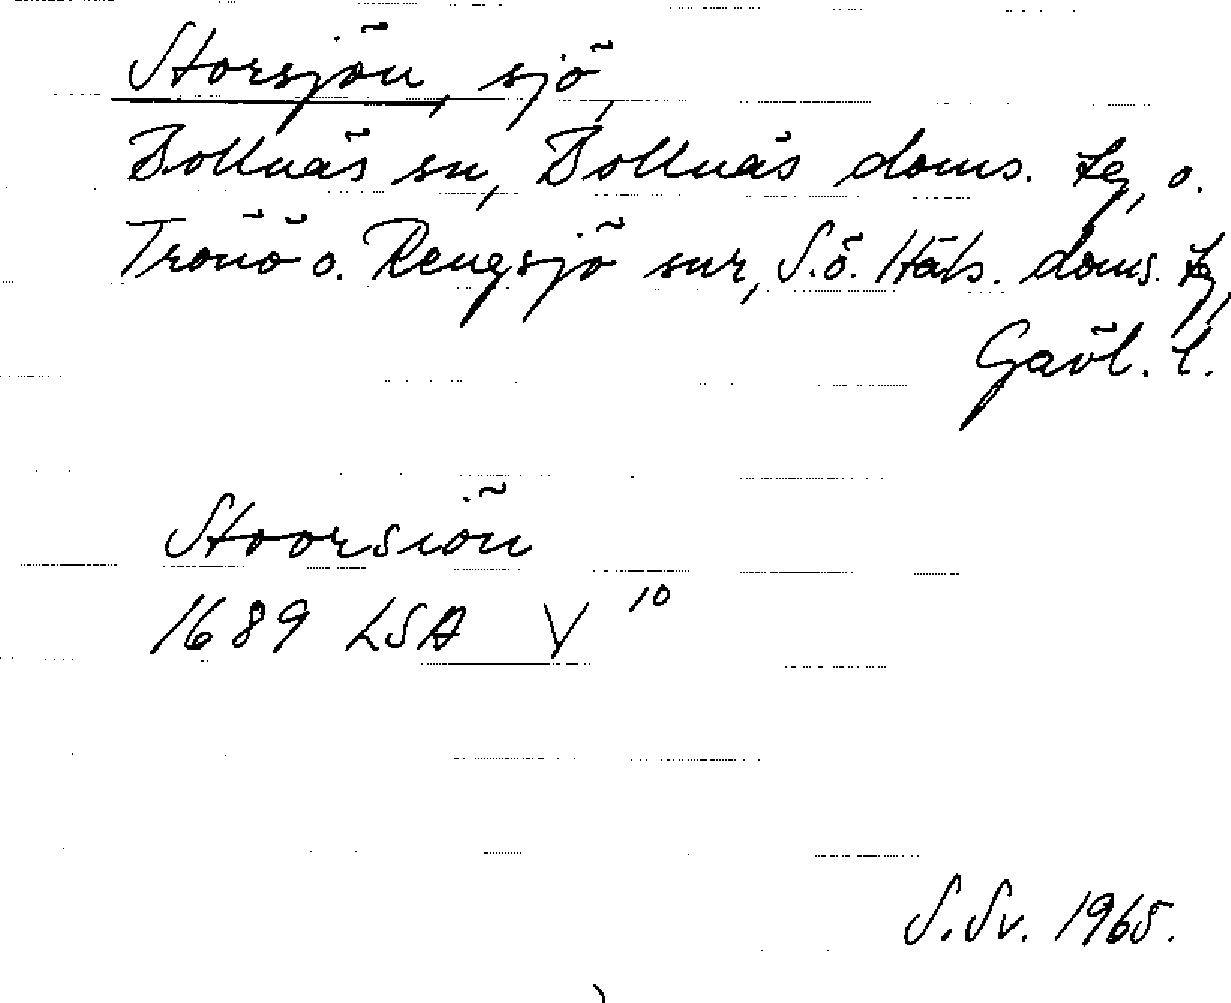 Storsjön, sjö,
Bollnäs sn, Bollnäs doms. tg, o.
Trönö o. Rengsjö snr, S.ö. Häls. doms. tg,
Gävl. l.
Stoorsiön
1689 LSA V 10
S.Sv. 1965.